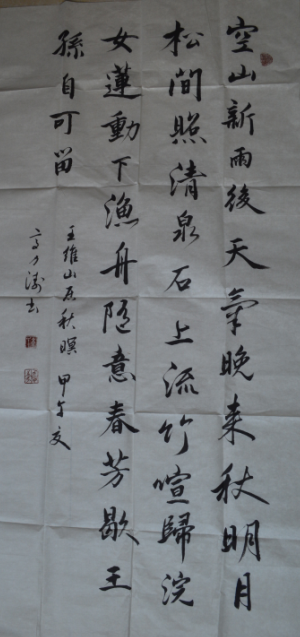 空山新雨後天氣晚来秋明月
松间照清泉石上流竹喧歸浣
女蓮動下漁舟隨意春芳歇王
孫自可留
王維山居秋暝 甲午夏